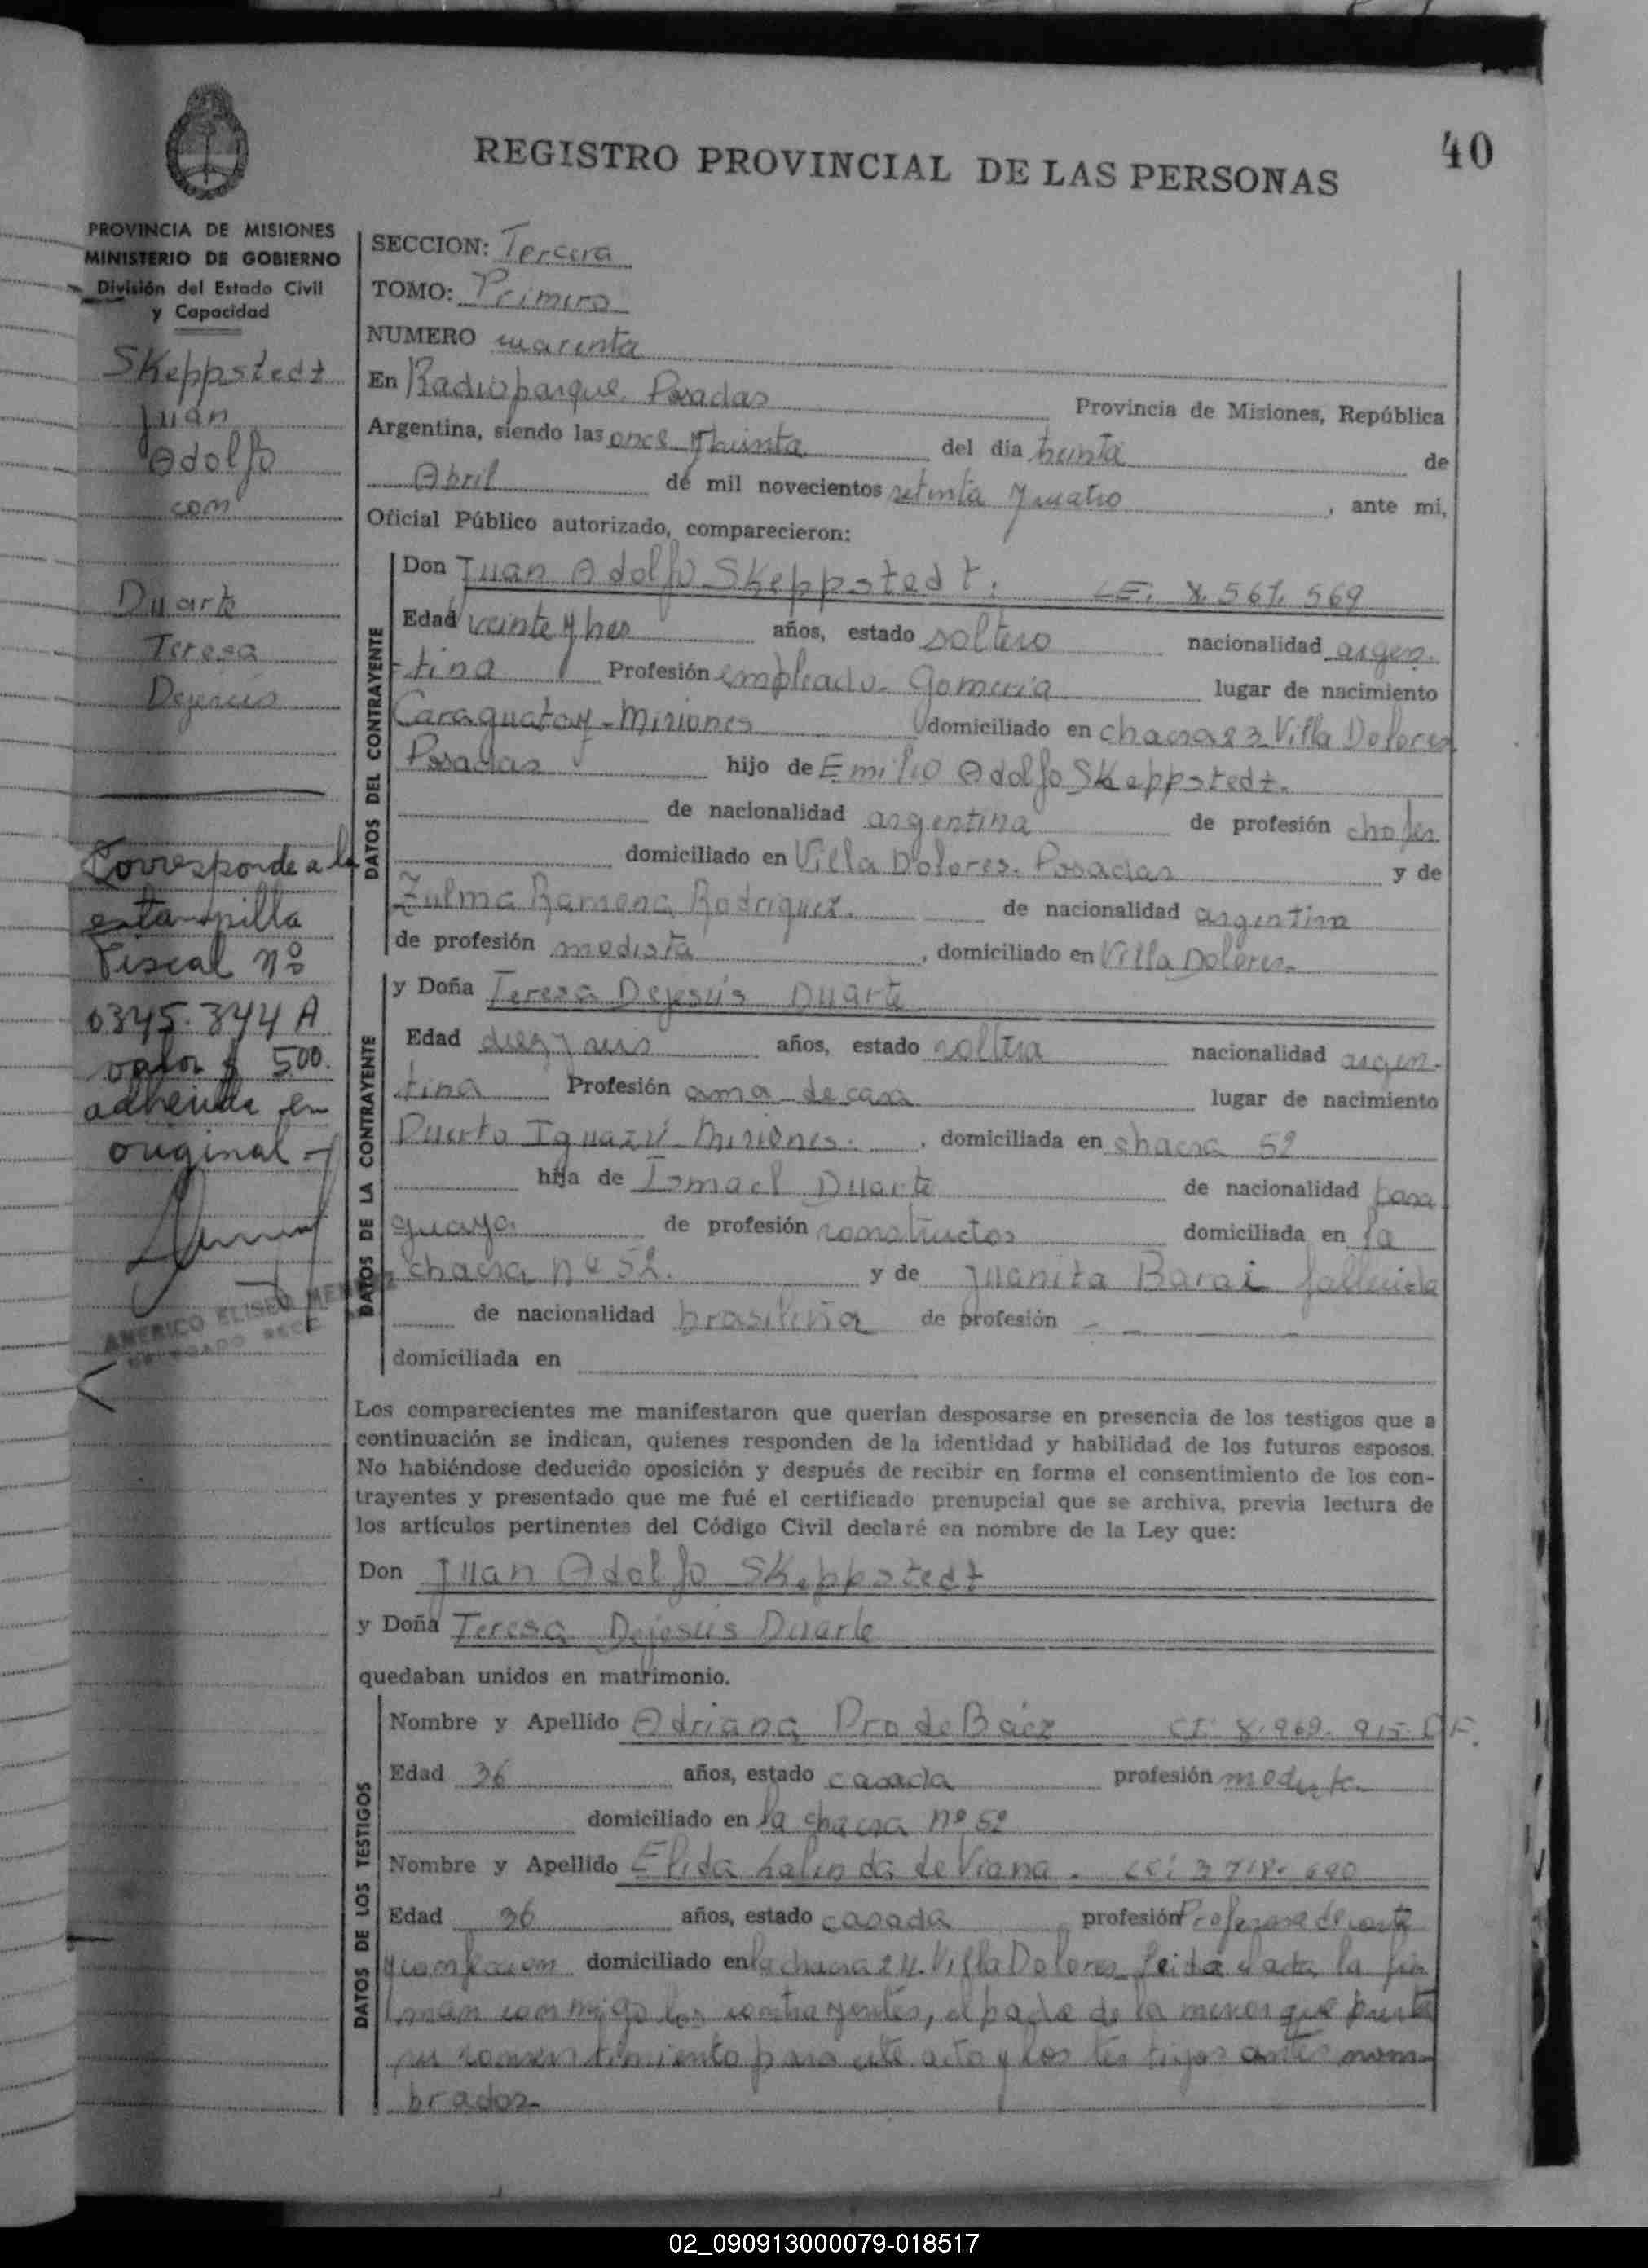 40
REGISTRO PROVINCIAL DE LAS PERSONAS
PROVINCIA DE MISIONES
MINISTERIO DE GOBIERNO
División del Estado Civil
y Capacidad
Skeppstedt
Juan
Adolfo
con
Duarte
Teresa
Dejesús
Corresponde a la
estampilla
Fiscal nº
0345.344 A
valor $ 5.00.
adherida en
original
AMERICO ELISEO
SECCION: Tercera
TOMO: Primero
NUMERO cuarenta
En Radioparque Posadas Provincia de Misiones, República
Argentina, siendo las once y treinta del dia treinta de
Abril de mil novecientos setenta y cuatro, ante mi,
Oficial Público autorizado, comparecieron:
DATOS DEL CONTRAYENTE
Don Juan Adolfo Skeppstedt. LE. 8.567.569
Edad veinte y tres años, estado soltero nacionalidad argen-
tina Profesión empleado gomeria lugar de nacimiento
Caraguatay-Misiones domiciliado en chacra 23 Villa Dolores
Posadas hijo de Emilio Adolfo Skeppstedt.
de nacionalidad argentina de profesión chofer
domiciliado en Villa Dolores. Posadas y de
Zulma Ramona Rodriguez. de nacionalidad argentina
de profesión modista, domiciliado en Villa Dolores-
DATOS DE LA CONTRAYENTE
y Doña Teresa Dejesús Duarte
Edad diez y seis años, estado soltera nacionalidad argen-
tina Profesión ama de casa lugar de nacimiento
Puerto Iguazú Misiones. , domiciliada en chacra 52
hija de Ismael Duarte de nacionalidad para
guaya de profesión constructor domiciliada en la
chacra nº 52. y de Juanita Barai fallecida
de nacionalidad brasileña de profesión - -
domiciliada en
Los comparecientes me manifestaron que querían desposarse en presencia de los testigos que a
continuación se indican, quienes responden de la identidad y habilidad de los futuros esposos.
No habiéndose deducido oposición y después de recibir en forma el consentimiento de los con-
trayentes y presentado que me fué el certificado prenupcial que se archiva, previa lectura de
los artículos pertinentes del Código Civil declaré en nombre de la Ley que:
Don Juan Adolfo Skeppstedt
y Doña Teresa Dejesús Duarte
quedaban unidos en matrimonio.
DATOS DE LOS TESTIGOS
Nombre y Apellido Adriana Pro de Báez CI. 8.969.915.
Edad 36 años, estado casada profesión modista
domiciliado en la chacra nº 52
Nombre y Apellido Elida Lalinda de Viana.
Edad 36 años, estado casada profesión Profesora de corte
y confeccion domiciliado en la chacra 24. Villa Dolores Leida el acta la fir
man conmigo los contrayentes, el padre de la menor que presta
su consentimiento para este acto y los testigos antes nom-
brados-
02_090913000079-018517